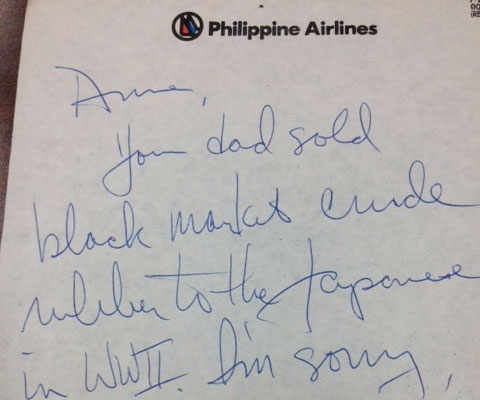 Philippine Airlines
Anne,
Your dad sold
black market crude
rubber to the Japanese
in WWII. I'm sorry,